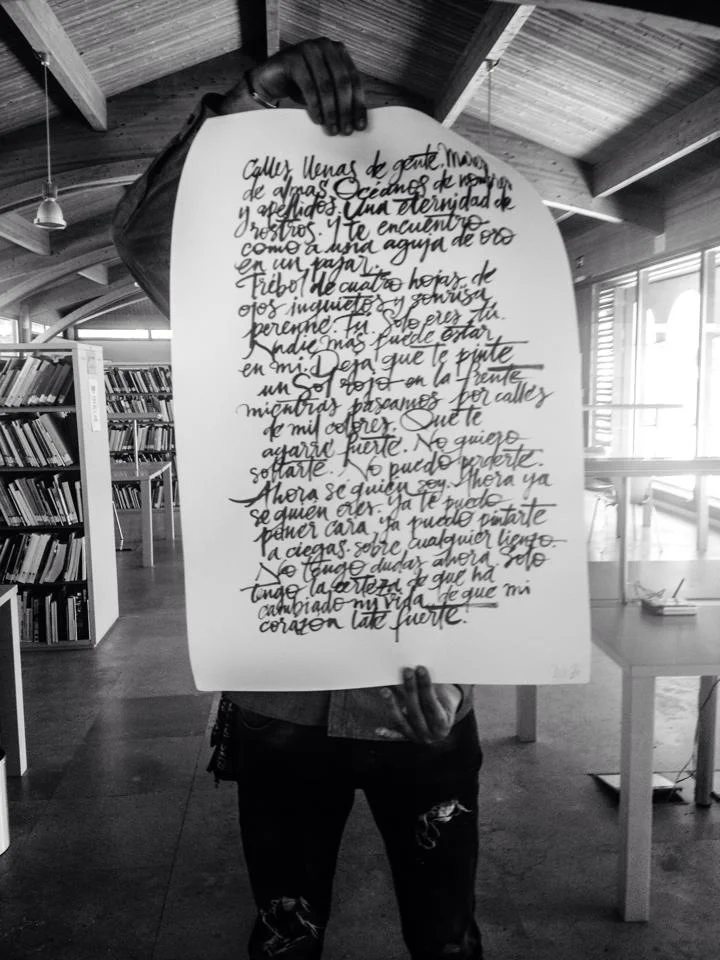 Calles llenas de gente. Mares
de almas. Océanos de nombres
y apellidos. Una eternidad de
rostros. y te encuentro
como a una aguja de oro
en un pajar.
Trébol de cuatro hojas, de
ojos inquietos y sonrisa
perenne. Tú. Solo eres tú.
Nadie más puede estar
en mi. Deja que te pinte
un Sol rojo en la frente
mientras paseamos por calles
de mil colores. Que te
agarre fuerte. No quiero
soltarte. No puedo perderte.
Ahora se quien soy. Ahora ya
se quien eres. Ya te puedo
poner cara, ya puedo pintarte
a ciegas sobre cualquier lienzo.
No tengo dudas ahora. Solo
tengo la certeza de que ha
cambiado mi vida, de que mi
corazón late fuerte.